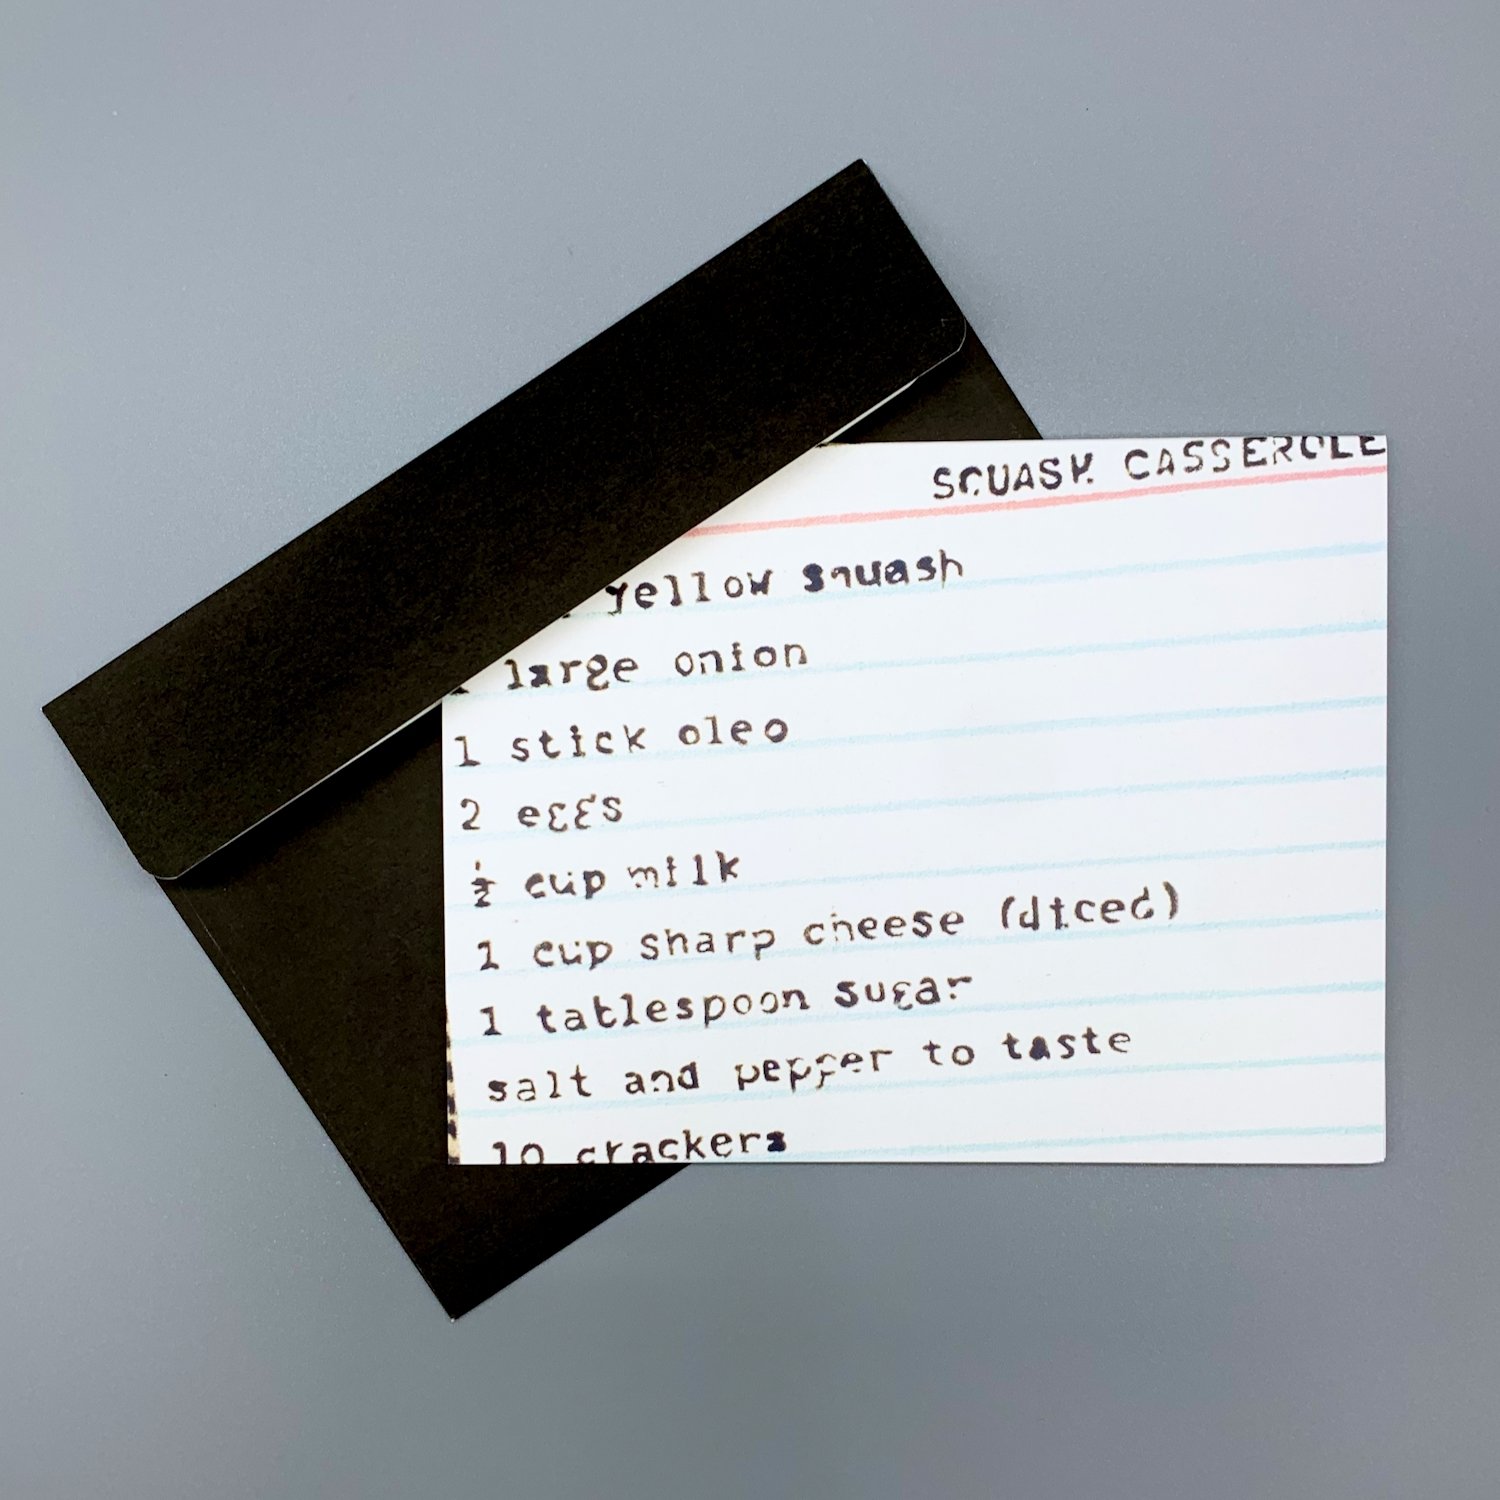 SQUASH CASSEROLE
yellow squash
large onion
1 stick oleo
2 eggs
½ cup milk
1 cup sharp cheese (diced)
1 tablespoon sugar
salt and pepper to taste
10 crackers